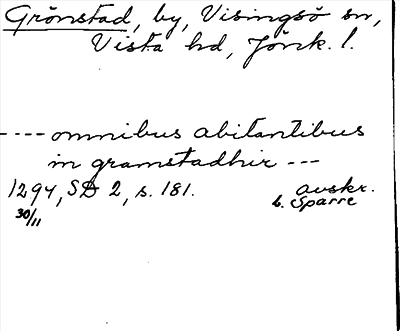 Grönstad, by, Visingsö sn,
Vista hd, Jönk. l.
---- omnibus abitantibus
in gramstadhir ---
1294, SD 2, s. 181. avskr.
30/11 b. Sparre